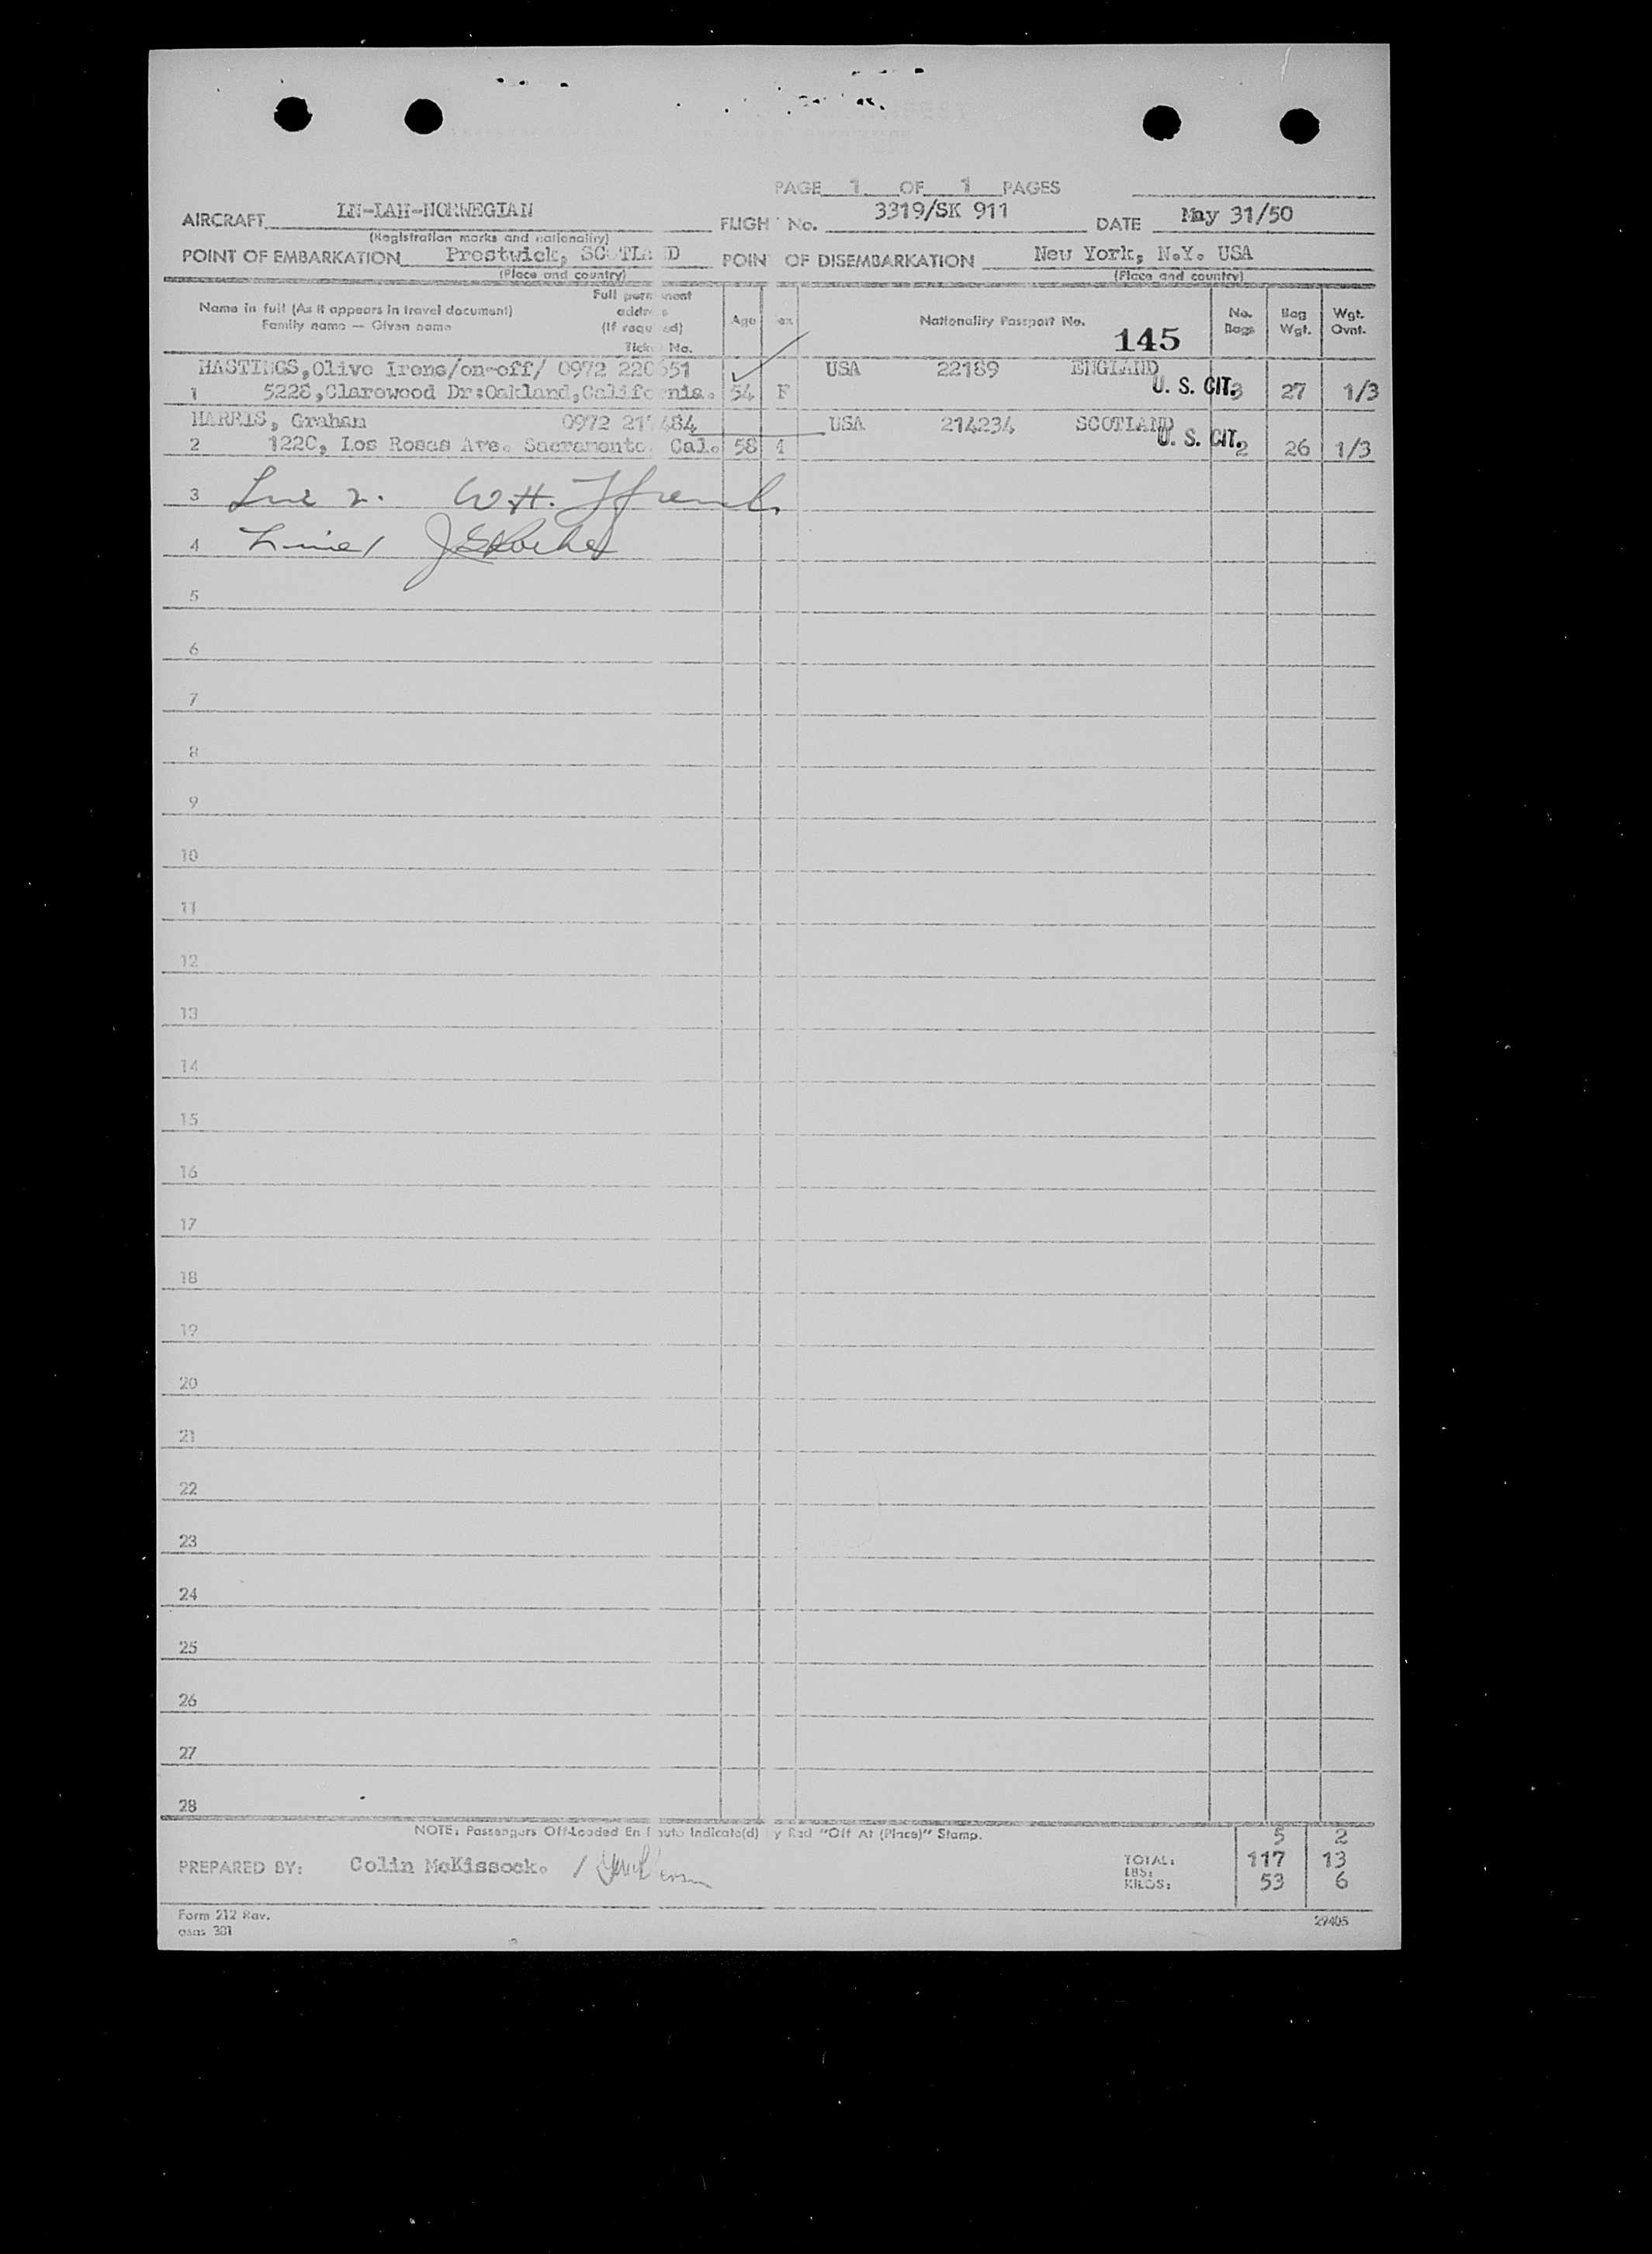 PAGE 1 OF 1 PAGES
AIRCRAFT LN-IAH-NORWEGIAN FLIGH No. 3319/SK 911 DATE May 31/50
(Registration marks and nationality)
POINT OF EMBARKATION Prestwick, SCOTLAND POIN OF DISEMBARKATION New York, N.Y. USA
(Place and country) (Place and country)
Name in full (As it appears in travel document) Full permanent address Age ex Nationality Passport No. No. Bags Bag Wgt. Wgt. Ovnt.
Family name — Given name (If required)
Ticket No. 145
HASTINGS, Olive Irene/on-off/ 0972 220 51 USA 22189 ENGLAND
1 5228, Clarewood Dr: Oakland, California. 54 F U. S. CIT. 3 27 1/3
HARRIS, Graham 0972 21 484 USA 214234 SCOTLAND
2 1220, Los Rosas Ave. Sacramento, Cal. 58 U. S. CIT. 2 26 1/3
3 Line 2. W.H.
4 Line 1
5
6
7
8
9
10
11
12
13
14
15
16
17
18
19
20
21
22
23
24
25
26
27
28
NOTE: Passengers Off-Loaded En Route Indicate(d) By Red "Off At (Place)" Stamp. 5 2
PREPARED BY: Colin McKissock. / TOTAL: LBS: 117 13
KILOS: 53 6
Form 212 Rev.
osas 301 29405